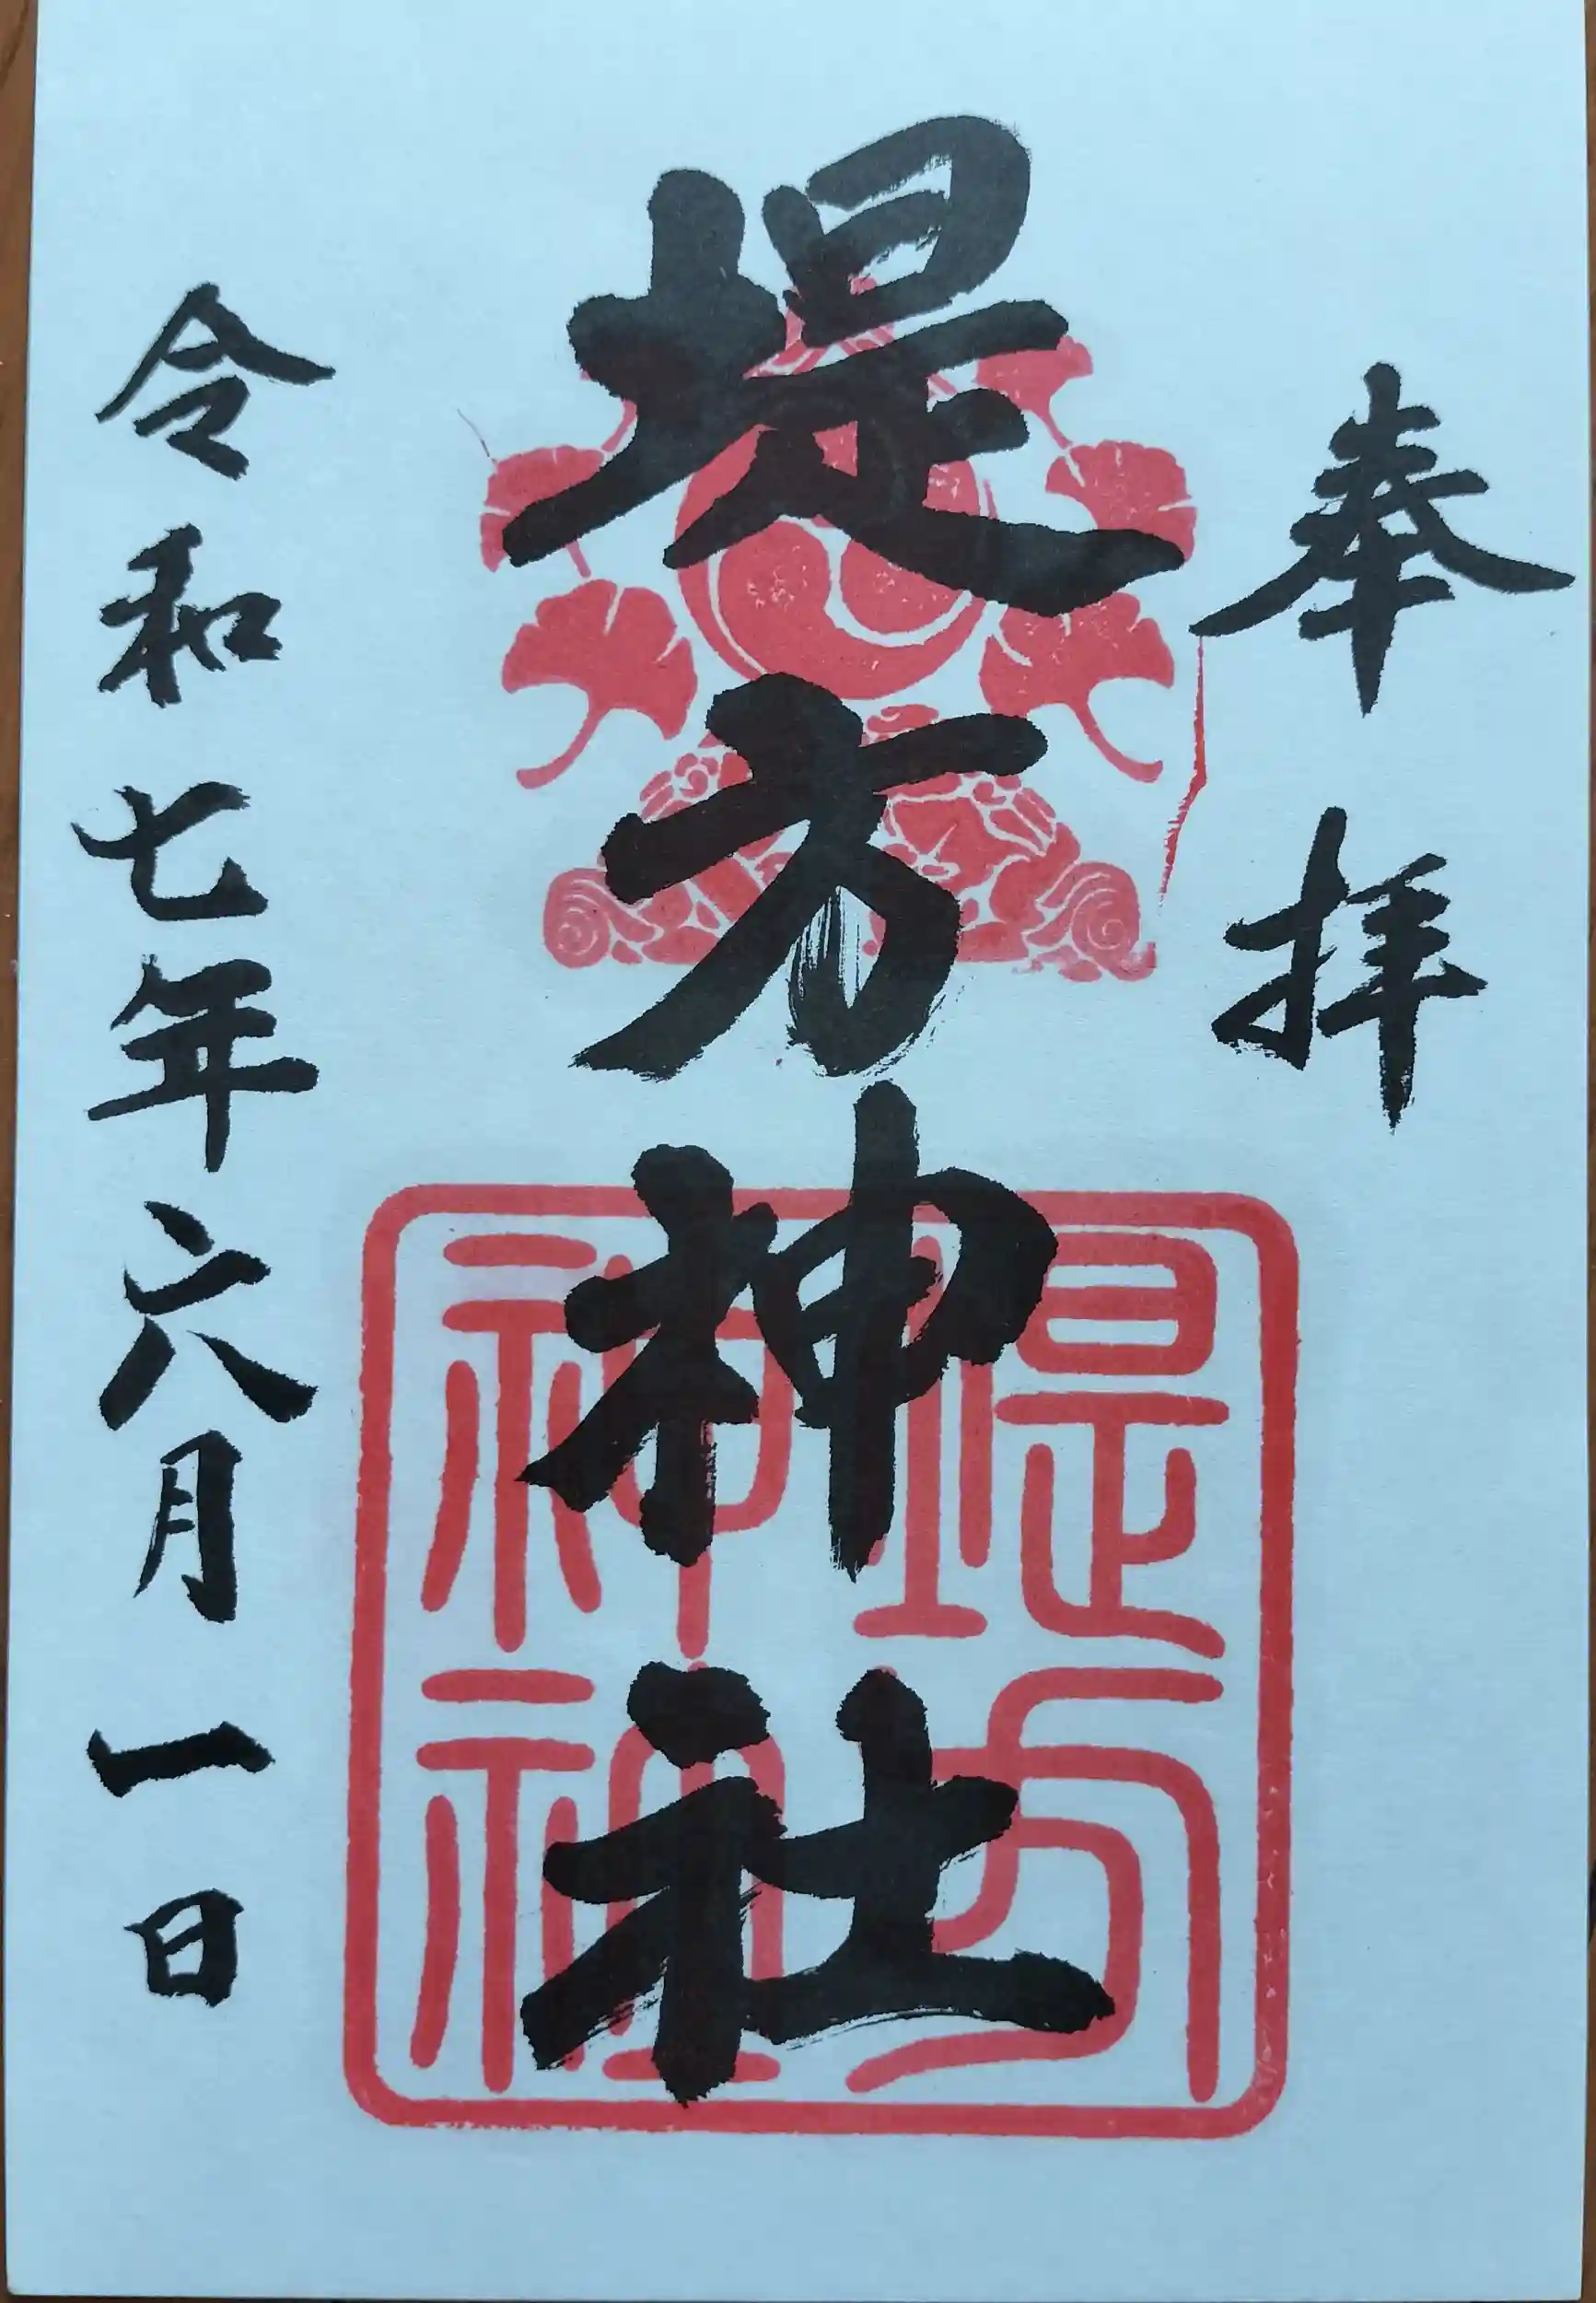 奉拝
堤方神社
堤方神社
令和七年六月一日